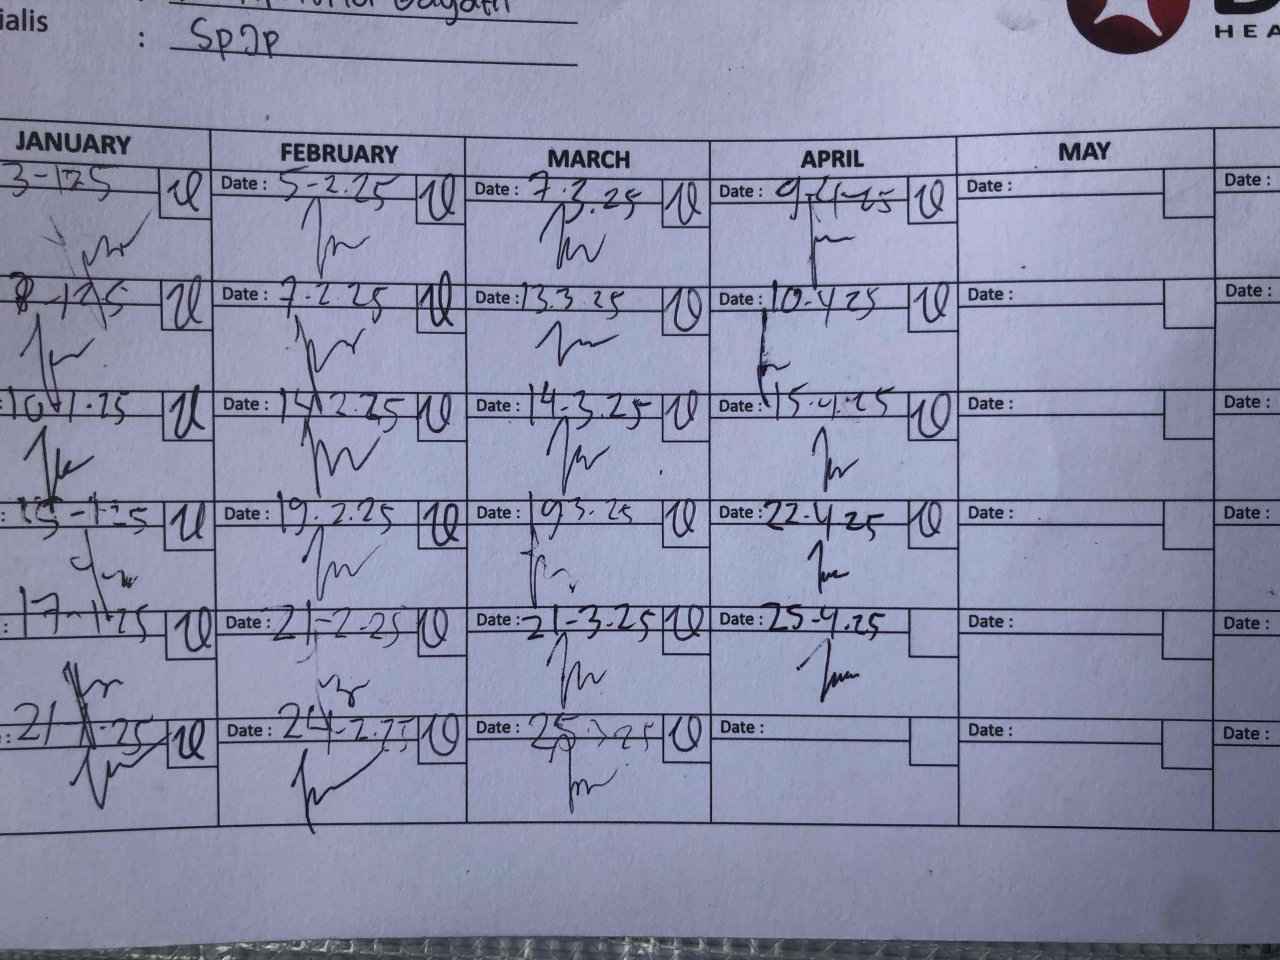 ialis
: SpJp
HEA
JANUARY FEBRUARY MARCH APRIL MAY
3-1-25 Date: 5-2.25 Date: 7.3.25 Date: 9-4-25 Date: Date:
8-1-25 Date: 7.2.25 Date: 13.3.25 Date: 10-4 25 Date: Date:
: 10-1-25 Date: 14.2.25 Date: 14-3.25 Date: 15-4.25 Date: Date:
: 15-1-25 Date: 19.2.25 Date: 193.25 Date: 22-4 25 Date: Date:
: 17-1-25 Date: 21-2-25 Date: 21-3.25 Date: 25-4.25 Date: Date:
: 21 1-25 Date: 24-2.25 Date: 25 3 25 Date: Date: Date: